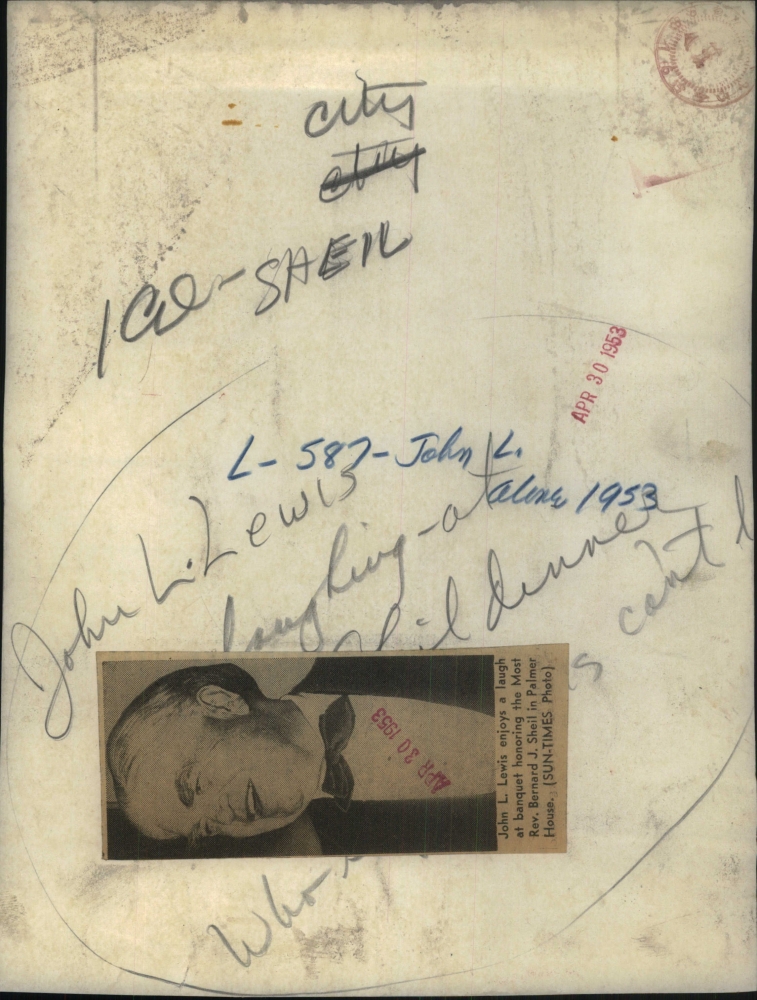 city
city
1 Col - SHEIL
APR 30 1953
L - 587 - John L.
alone 1953
John L. Lewis
laughing - at
dinner
can't
Who
APR 30 1953
John L. Lewis enjoys a laugh
at banquet honoring the Most
Rev. Bernard J. Sheil in Palmer
House. (SUN-TIMES Photo)